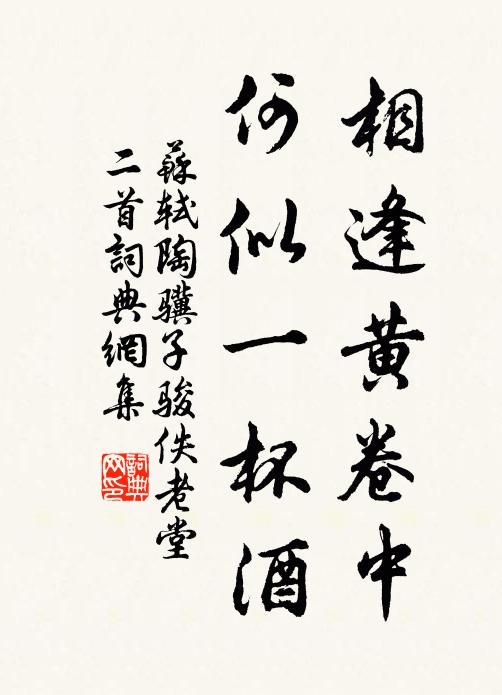 相逢黄卷中
何似一杯酒
蘇軾陶骥子骏佚老堂
二首詞典網集
詞典
网印